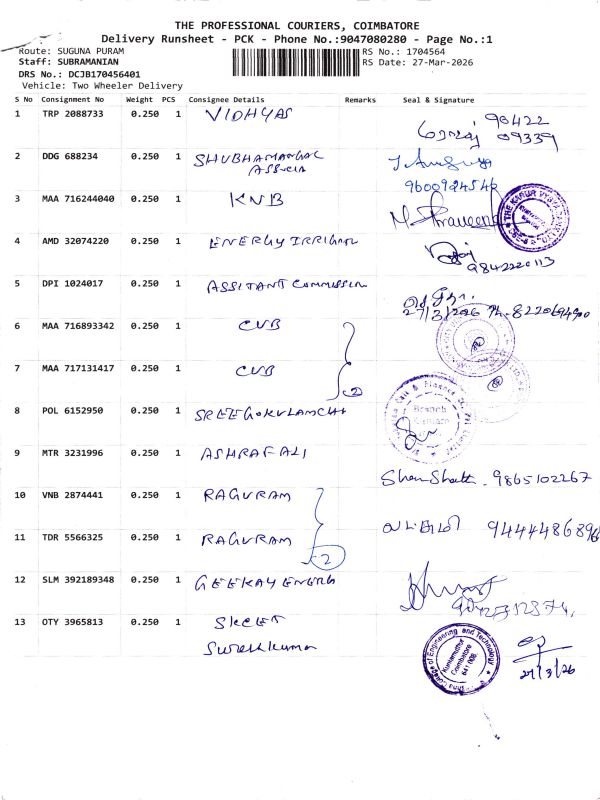 THE PROFESSIONAL COURIERS, COIMBATORE
Delivery Runsheet - PCK - Phone No.:9047080280 - Page No.:1
Route: SUGUNA PURAM
RS No.: 1704564
Staff: SUBRAMANIAN
RS Date: 27-Mar-2026
DRS No.: DCJB170456401
Vehicle: Two Wheeler Delivery
S No Consignment No Weight PCS Consignee Details Remarks Seal & Signature
1 TRP 2088733 0.250 1 VIDHYAS 98422
09339
2 DDG 688234 0.250 1 SHUBHAMANGAL
3 MAA 716244040 0.250 1 KVB
4 AMD 32074220 0.250 1 ENERGY IRRIGAN
9842220113
5 DPI 1024017 0.250 1 ASSITANT COMMISSIN
27/3/2026 Ph-8220694900
6 MAA 716893342 0.250 1 CUB
7 MAA 717131417 0.250 1 CUB
2
8 POL 6152950 0.250 1 SREEGOKULAMCHI
9 MTR 3231996 0.250 1 ASHRAFALI
9865102267
10 VNB 2874441 0.250 1 RAGURAM
11 TDR 5566325 0.250 1 RAGURAM
2
12 SLM 392189348 0.250 1 GEEKAY ENERG
13 OTY 3965813 0.250 1
Sureshkumar
27/3/26